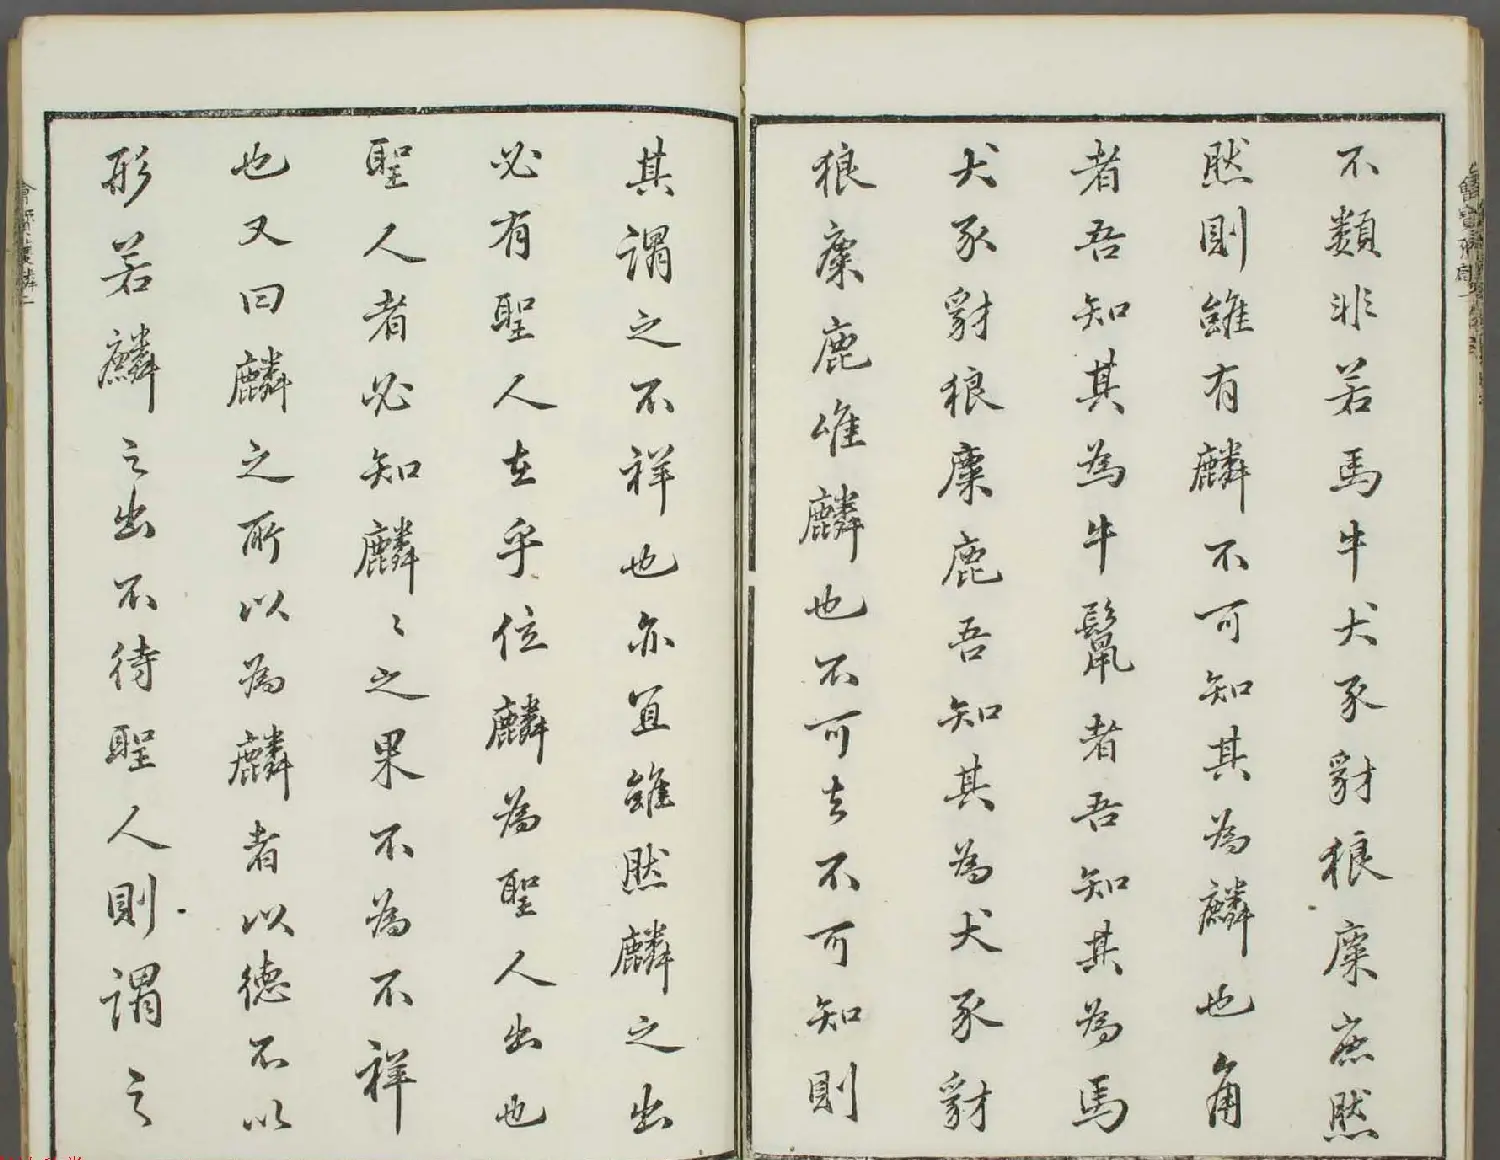 不類非若馬牛犬豕豺狼麋鹿然
然則雖有麟不可知其為麟也角
者吾知其為牛鬣者吾知其為馬
犬豕豺狼麋鹿吾知其為犬豕豺
狼麋鹿唯麟也不可知不可知則
其謂之不祥也亦宜雖然麟之出
必有聖人在乎位麟為聖人出也
聖人者必知麟〻之果不為不祥
也又曰麟之所以為麟者以德不以
形若麟之出不待聖人則謂之